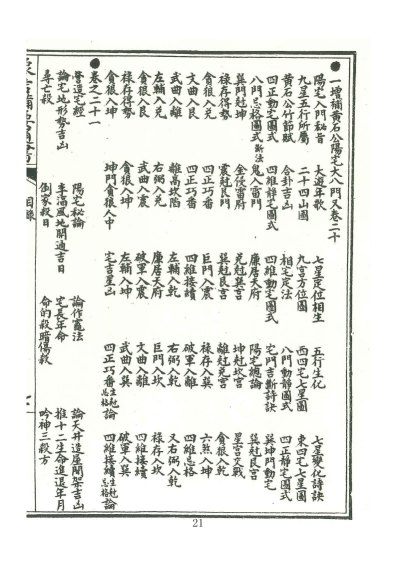 一增補黃石公陽宅大八門又卷二十
陽宅入門秘旨 大遊年歌 七星定位相生 五行生化 七星變化詩訣
九星五行所屬 二十四山圖 九宮方位圖 西四宅七星圖 東四宅七星圖
黃石公竹節賦 合卦吉凶 相宅定法 八門動靜圖 四正靜宅圖式
四正動宅圖式 四維靜宅圖式 四維動宅圖式 宅門吉斷詩訣 巽坤門動宅
八門总格圖式斷法 鬼入雷門 廉居天府 陽宅總論 巽尅艮宮
巽門尅坤 金侵雷府 兌尅巽宮 坤尅坎宮 星宮交戰
祿存得勢 震尅艮宮 巽尅艮宮 離尅兌宮 貪狼入乾
貪狼入兌 四正巧番 巨門入震 祿存入巽 六煞入坤
文曲入艮 四正巧番 四維接續 破軍入離 四維总格
武曲入離 離高坎陷 左輔入乾 右弼入乾 又右弼入乾
左輔入兌 右弼入兌 廉居天府 巨門入坎 祿存入坎
貪狼入艮 武曲入震 破軍入震 文曲入離 四維接續
祿存得勢 貪狼入坤 左輔入坤 武曲入巽 破軍入巽
貪狼入坎 坤門貪狼入中 宅吉星凶 四正巧番生尅总格論 四維接續生尅总格論
卷之二十一
營造宅經 陽宅秘論 論作竈法 論天井造屋間架吉凶
論宅地形勢吉凶 李滿風地開通吉日 宅長年命 推十二生命進退年月
尋亡殺 劉家殺日 命的殺暗傷殺 吟神三殺方
目錄
21